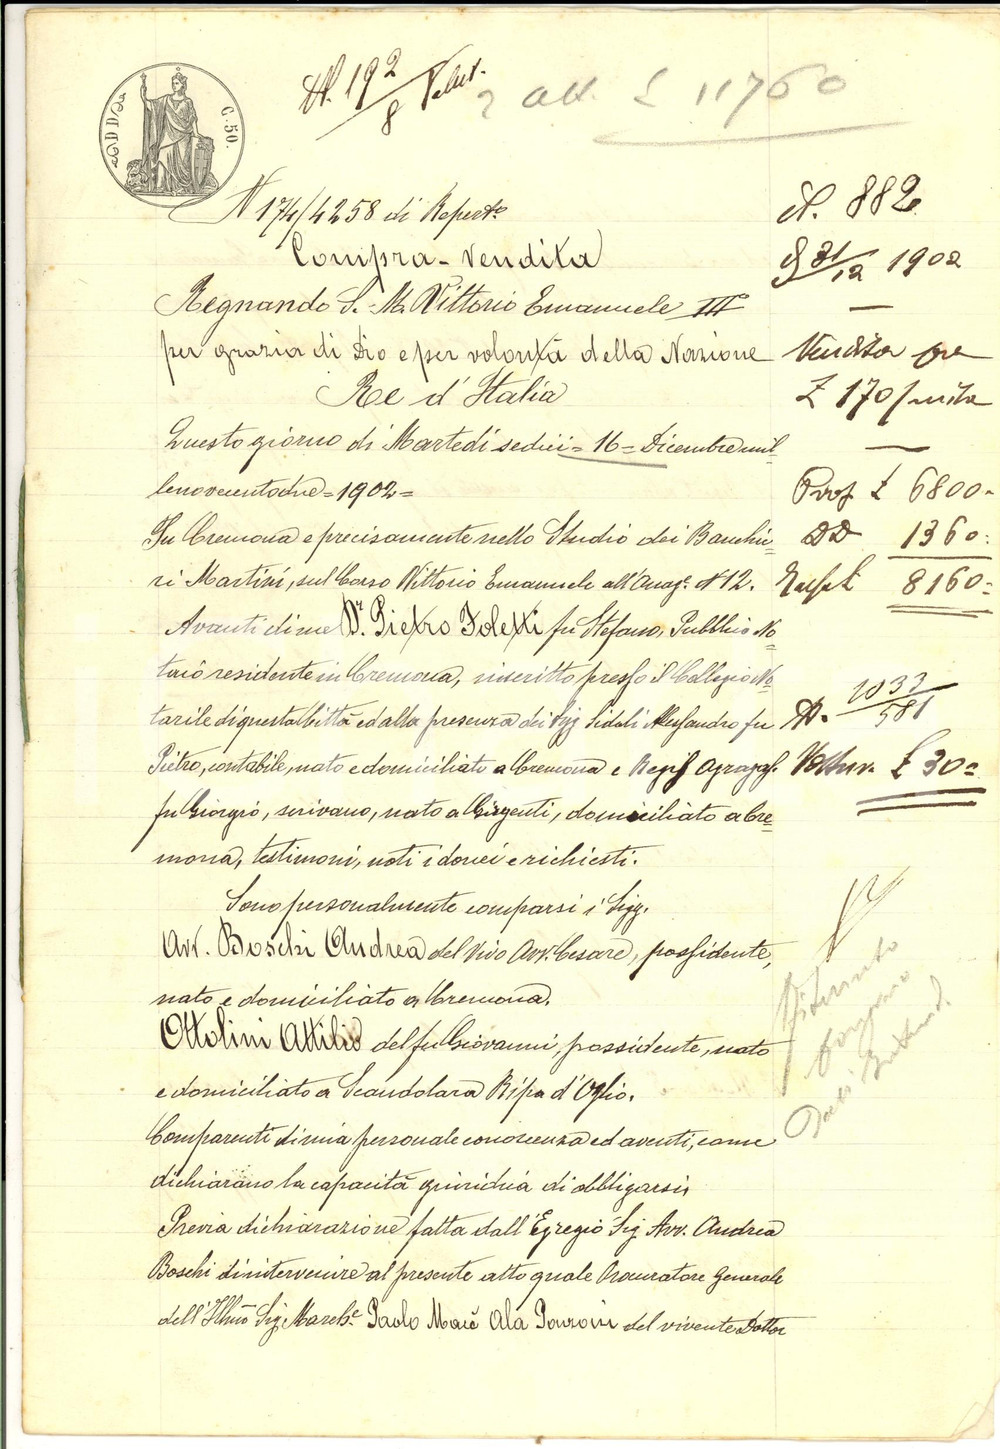 N. 192/8
2 all. £ 11760
C. 50.
N 174/4258 di Repert.o
Compra-Vendita
Regnando S. M. Vittorio Emanuele III°
per grazia di Dio e per volontà della Nazione
Re d'Italia
Questo giorno di Martedì sedici = 16 = Dicembre mil-
lenovecentodue = 1902 =
In Cremona e precisamente nello Studio dei Banchie-
ri Martini, sul Corso Vittorio Emanuele all'Anag.e N° 12.
Avanti di me Dr. Pietro Foletti fu Stefano, Pubblico No-
taio residente in Cremona, inscritto presso il Collegio No-
tarile di questa Città ed alla presenza dei Sigg. Sidoli Alessandro fu
Pietro, contabile, nato e domiciliato a Cremona e
fu Giorgio, scrivano, nato a Girgenti, domiciliato a Cre-
mona, testimoni, noti idonei e richiesti.
Sono personalmente comparsi i Sigg.
Avv. Boschi Andrea del vivo Avv. Cesare, possidente,
nato e domiciliato a Cremona.
Ottolini Attilio del fu Giovanni, possidente, nato
e domiciliato a Scandolara Ripa d'Oglio.
Comparenti di mia personale conoscenza ed aventi, come
dichiarano la capacità giuridica di obbligarsi,
Previa dichiarazione fatta dall'Egregio Sig. Avv. Andrea
Boschi d'intervenire al presente atto quale Procuratore Generale
dell'Illmo Sig. March.e Paolo Ala Ponzoni del vivente Dottor
N. 882
31/12 1902
—
Vendita per
£ 170/mila
—
Prop £ 6800.
DD 1360.
£ 8160=
N. 1033/581
£ 30=